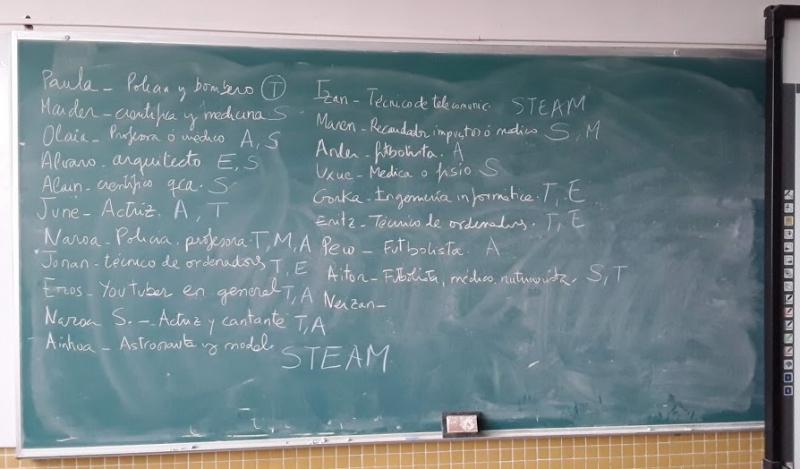 Paula - Policia y bombero T
Maider - cientifica y medicina S
Olaia - Profesora o médico A, S
Alvaro - arquitecto E, S
Alain - cientifico qca. S
June - Actriz. A, T
Naroa - Policia, profesora T, M, A
Jonan - técnico de ordenadores T, E
Eros - YouTuber en general T, A
Naroa S. - Actriz y cantante T, A
Ainhoa - Astronauta y modelo STEAM
Izan - Técnico de telecomunic. STEAM
Maren - Recaudador impuestos ó médico S, M
Ander - futbolista. A
Uxue - Medica o fisio S
Gorka - Ingenieria informatica. T, E
Eritz - Técnico de ordenadores. T, E
Peio - Futbolista. A
Aitor - Futbolista, médico, nutricionista. S, T
Neizan -